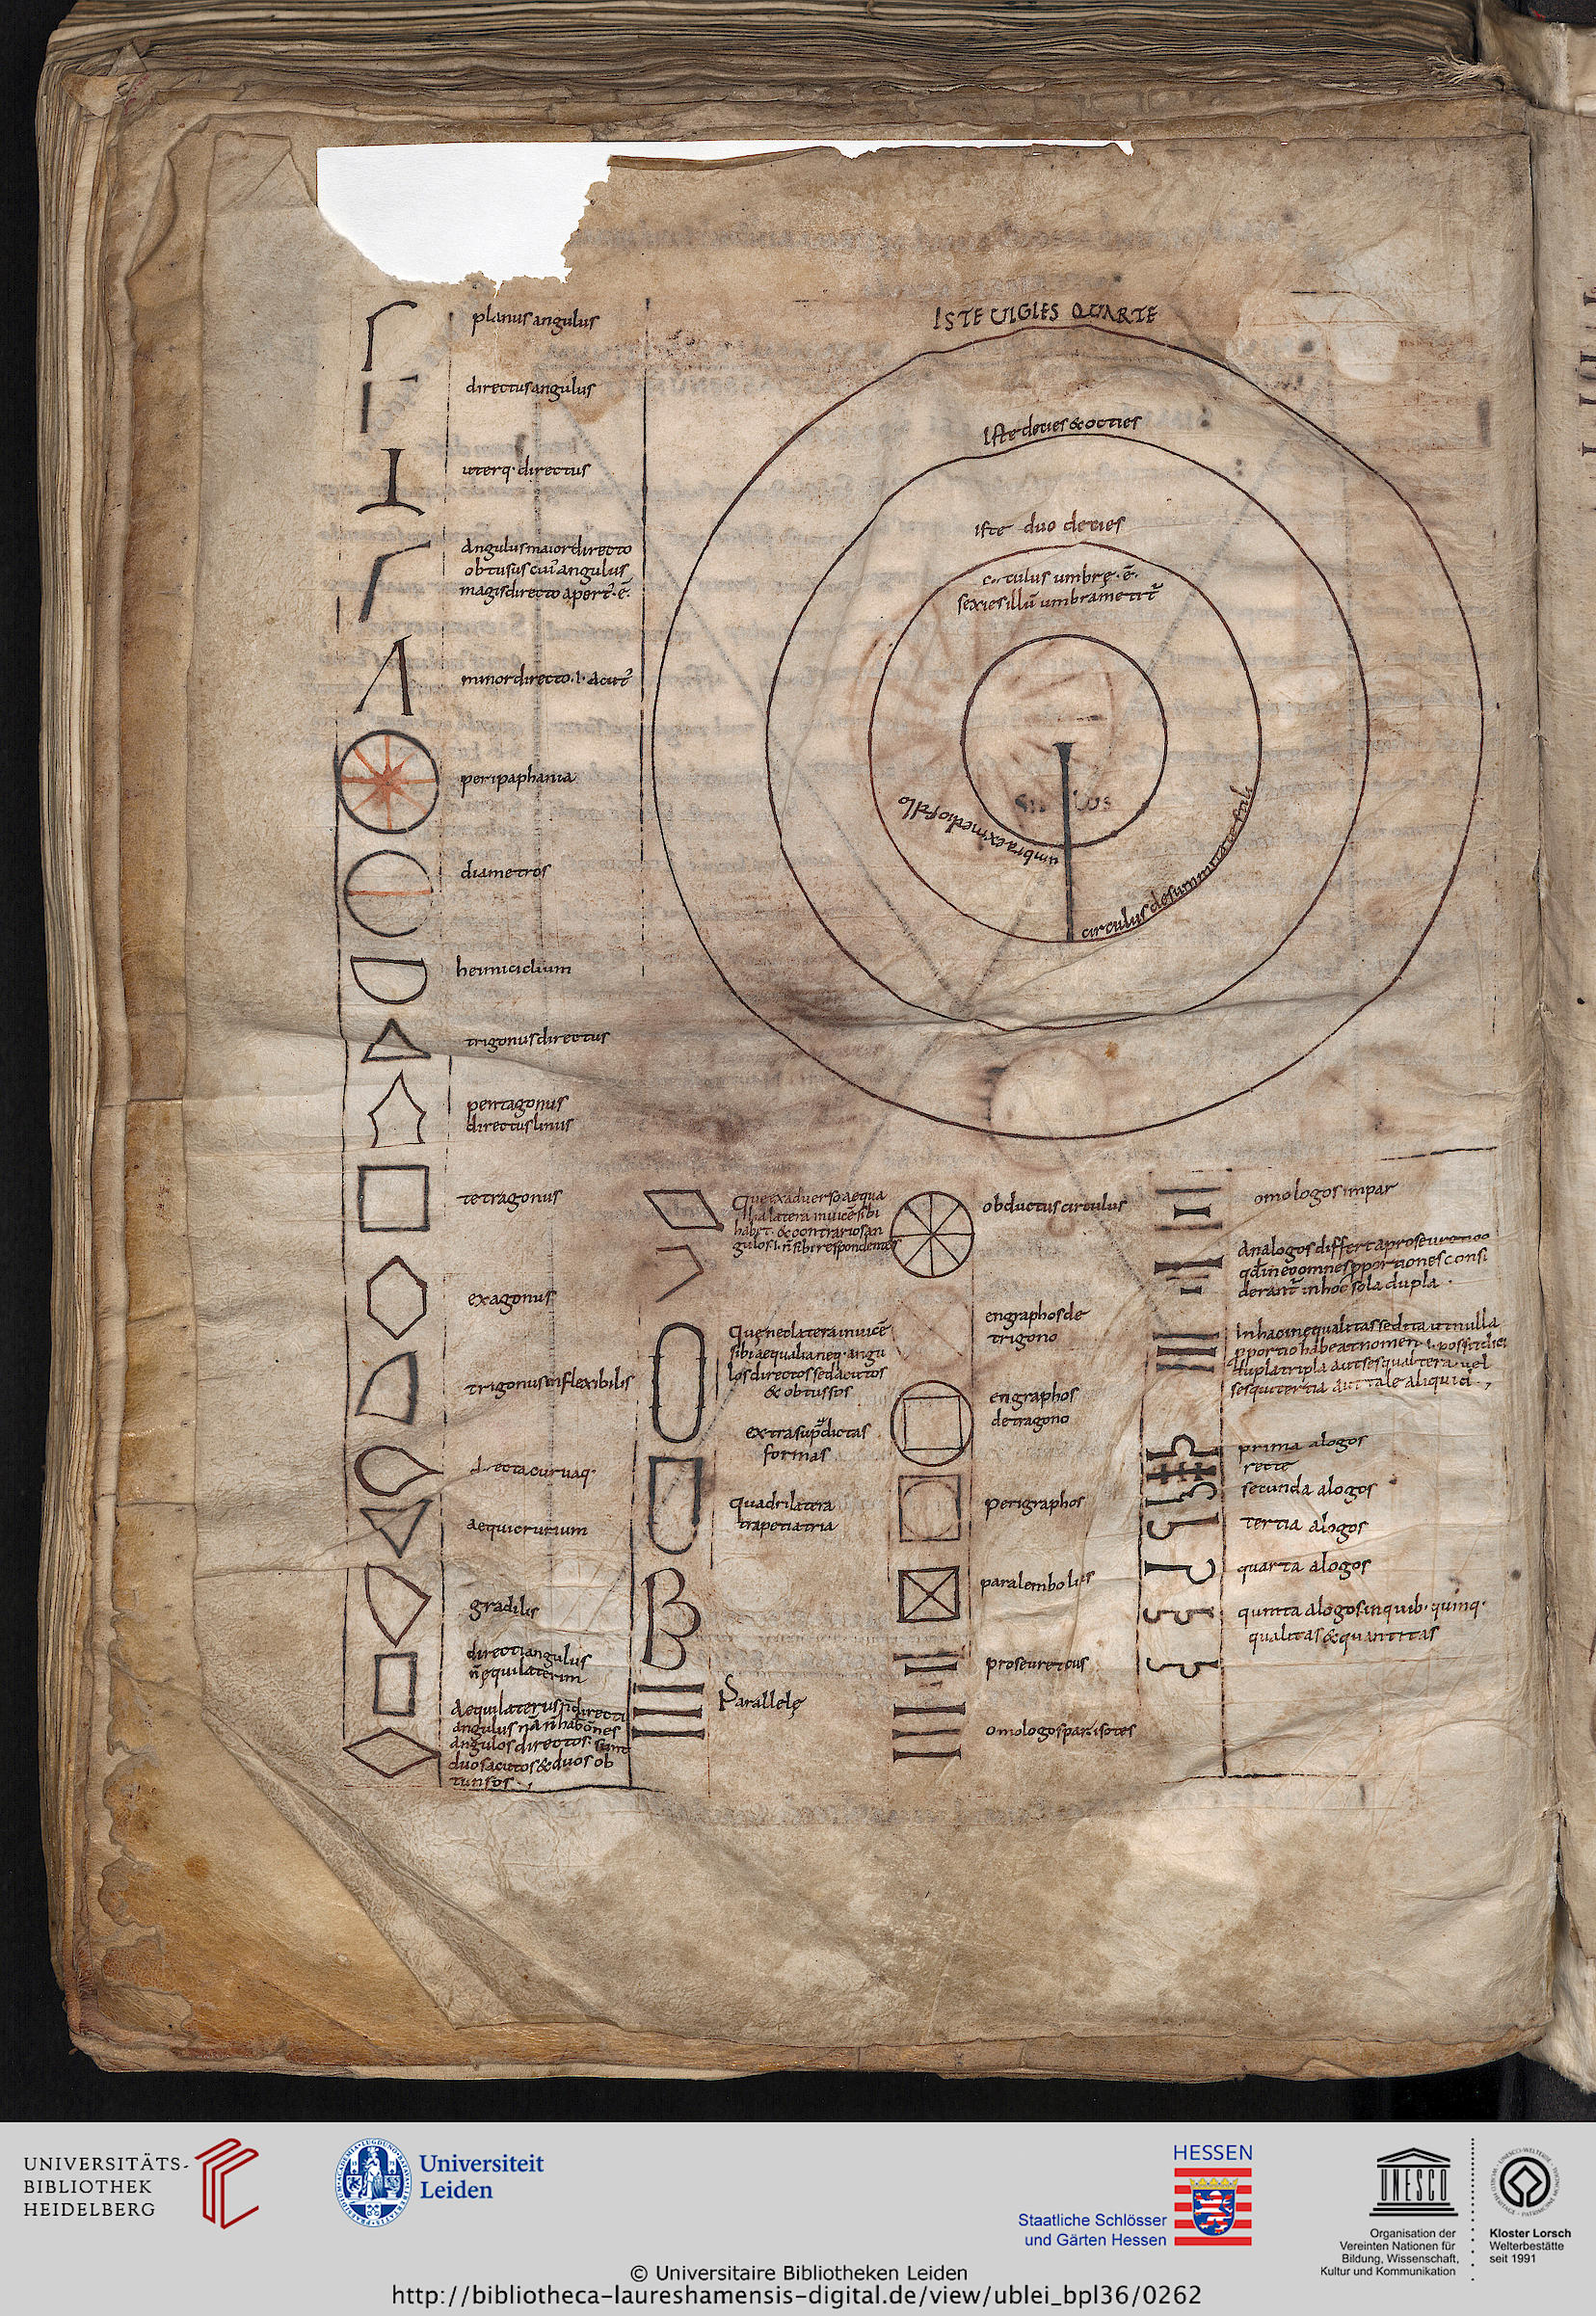 planus angulus
directus angulus
uterq· directus
angulus maior directo
obtusus cui' angulus
magis directo apert'· ē·
minor directo·i· acut'
peripaphania
diametros
hemiciclium
trigonus directus
pentagonus
directus linus
tetragonus
exagonus
trigonus inflexibilis
recta curuaq·
aequicrurium
gradilis
directiangulus
n̄ equilaterum
Aequilaterus n̄ directi
angulus nā n̄ hab& omnes
angulos directos· sunt
duos acutos & duos ob
tunsos·,
ISTE UIGIES QUARTE
Iste decies & octies
iste duo decies
culus umbrę·ē·
sexies illū umbra metit̄
umbra ex medio stilo
circulus de summitate stili
Que ex aduerso aequa
lia latera inuicē sibi
hab&· & contrarios an
gulos·i· n̄ sibi respondentes
Quę nec latera inuicē
sibi aequalia neq· angu
los directos sed acutos
& obtussos
extra sup̄dictas
formas
quadrilatera
trapetia tria
Parallelę
obductus circulus
engraphos de
trigono
engraphos
detragono
perigraphos
paralembolus
proseureticus
omologos par isotes
omologos impar
Analogos differt a proseuretico
qđ in eo omnes pportiones consi
derant̄ in hoc sola dupla·
In hac inequalitas sed ita ut nulla
pportio habeat nomen·i· possit dici
dupla tripla aut sesqualtera uel
sesquitertia aut tale aliquid·,
prima alogos
recte
secunda alogos
tertia alogos
quarta alogos
quinta alogos in quib· quinq·
qualitas & quantitas
UNIVERSITÄTS-
BIBLIOTHEK
HEIDELBERG
Universiteit
Leiden
HESSEN
Staatliche Schlösser
und Gärten Hessen
UNESCO
Organisation der
Vereinten Nationen für
Bildung, Wissenschaft,
Kultur und Kommunikation
Kloster Lorsch
Welterbestätte
seit 1991
© Universitaire Bibliotheken Leiden
http://bibliotheca-laureshamensis-digital.de/view/ublei_bpl36/0262